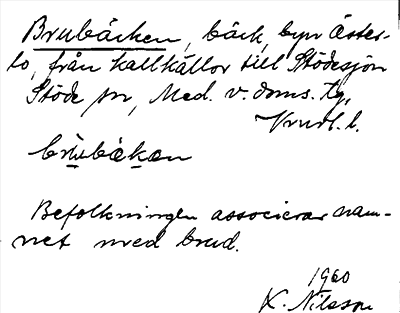 Brubäcken, bäck, byn Öster-
lo, från kallkällor till Stödesjön
Stöde sn, Med. v. doms. tg,
l.
brubäkæn
Befolkningen associerar nam-
net med brud.
1960
K. Nilsson